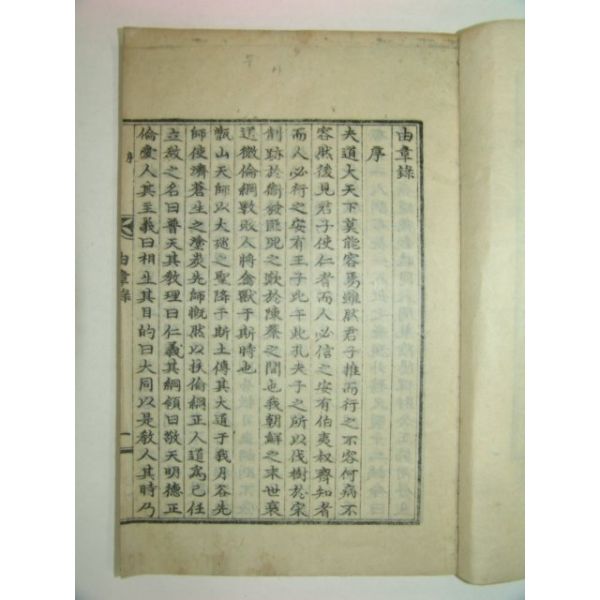 由章錄
序
夫道大天下莫能容焉雖然君子推而行之不容何病不
容然後見君子使仁者而人必信之安有伯夷叔齊知者
而人必行之安有王子比干此孔夫子之所以伐樹於宋
削跡於衛發匪兕之歎於陳蔡之間也我朝鮮之末世衰
道微倫綱斁敗人將禽獸于斯時也
甑山天師以大聖降于斯土傳其大道于我月谷先
師使濟蒼生之塗炭先師慨然以扶倫綱正人道爲己任
立敎之名曰普天其敎理曰仁義其綱領曰敬天明德正
倫愛人其主義曰相生其目的曰大同以是敎人其時乃
序
由章錄
一